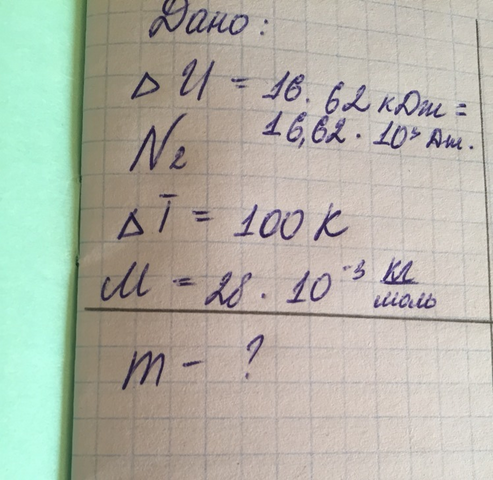 Дано:
ΔU = 16.62 кДж =
16,62 · 10³ Дж.
N₂
ΔT = 100 K
M = 28 · 10⁻³ кг/моль
m - ?